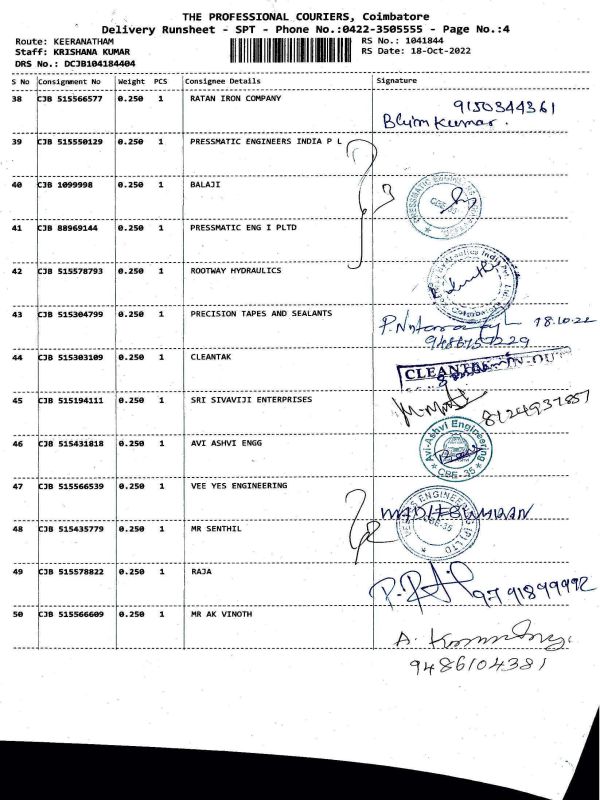 THE PROFESSIONAL COURIERS, Coimbatore
Delivery Runsheet - SPT - Phone No.:0422-3505555 - Page No.:4
Route: KEERANATHAM
Staff: KRISHANA KUMAR
DRS No.: DCJB104184404
RS No.: 1041844
RS Date: 18-Oct-2022
S No Consignment No Weight PCS Consignee Details Signature
38 CJB 515566577 0.250 1 RATAN IRON COMPANY 9150344361
Kumar.
39 CJB 515550129 0.250 1 PRESSMATIC ENGINEERS INDIA P L
40 CJB 1099998 0.250 1 BALAJI 3
PRESSMATIC CBE-35
41 CJB 88969144 0.250 1 PRESSMATIC ENG I PLTD
42 CJB 515578793 0.250 1 ROOTWAY HYDRAULICS
Hydraulics India Pvt. Ltd.
43 CJB 515304799 0.250 1 PRECISION TAPES AND SEALANTS
18.10.22
44 CJB 515303109 0.250 1 CLEANTAK
CLEANTAK
45 CJB 515194111 0.250 1 SRI SIVAVIJI ENTERPRISES
8124937857
46 CJB 515431818 0.250 1 AVI ASHVI ENGG
Avi-Ashvi Engineering
CBE-35
47 CJB 515566539 0.250 1 VEE YES ENGINEERING
ENGINEERING (P) LTD
CBE-35
48 CJB 515435779 0.250 1 MR SENTHIL 2
49 CJB 515578822 0.250 1 RAJA
9791899992
50 CJB 515566609 0.250 1 MR AK VINOTH
A.
9486104381